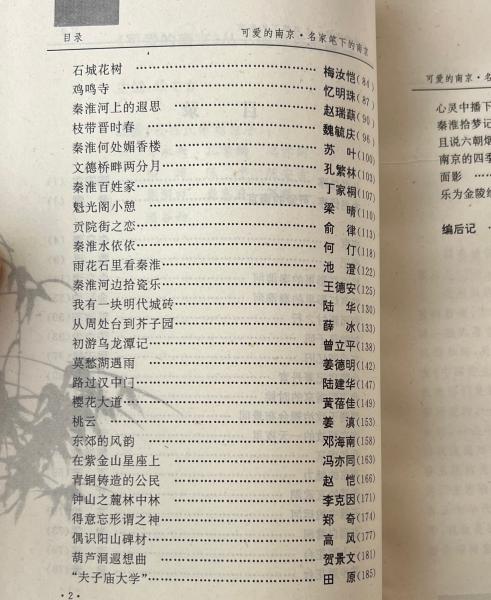 目录
可爱的南京·名家笔下的南京
石城花树 梅汝恺(84)
鸡鸣寺 忆明珠(87)
秦淮河上的遐思 赵瑞蕻(90)
枝带晋时春 魏毓庆(96)
秦淮何处媚香楼 苏 叶(100)
文德桥畔两分月 孔繁林(103)
秦淮百姓家 丁家桐(107)
魁光阁小憩 梁 晴(110)
贡院街之恋 俞 律(113)
秦淮水依依 何 仃(118)
雨花石里看秦淮 池 澄(122)
秦淮河边拾瓷乐 王德安(125)
我有一块明代城砖 陆 华(130)
从周处台到芥子园 薛 冰(133)
初游乌龙潭记 曾立平(138)
莫愁湖遇雨 姜德明(142)
路过汉中门 陆建华(147)
樱花大道 黄蓓佳(149)
桃云 姜 滇(153)
东郊的风韵 邓海南(158)
在紫金山星座上 冯亦同(163)
青铜铸造的公民 赵 恺(166)
钟山之麓林中林 李克因(171)
得意忘形谓之神 郑 奇(174)
偶识阳山碑材 高 风(177)
葫芦洞遐想曲 贺景文(181)
“夫子庙大学” 田 原(185)
·2·
可爱的南京·名
心灵中播下
秦淮拾梦记
且说六朝烟
南京的四季
面影
乐为金陵绘
编后记